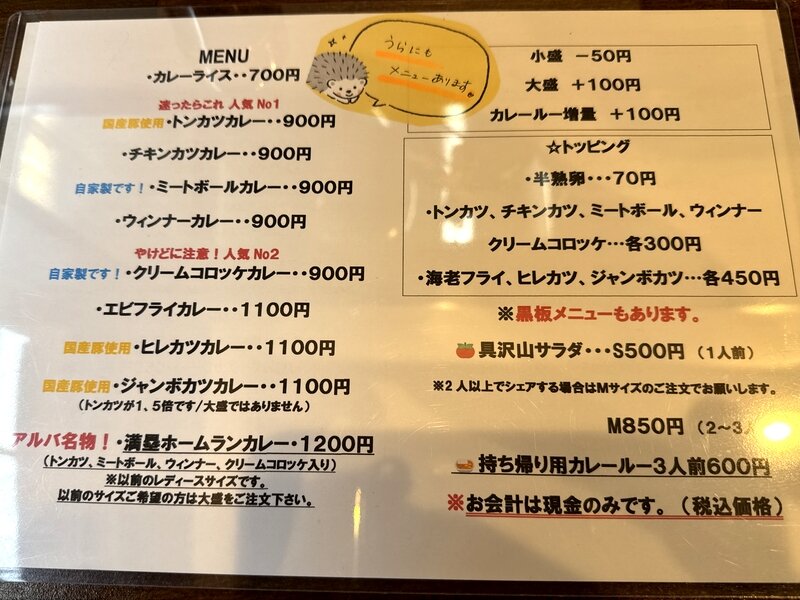 MENU
・カレーライス・・700円
迷ったらこれ 人気 No1
国産豚使用・トンカツカレー・・900円
・チキンカツカレー・・900円
自家製です！・ミートボールカレー・・900円
・ウィンナーカレー・・900円
やけどに注意！人気 No2
自家製です！・クリームコロッケカレー・・900円
・エビフライカレー・・1100円
国産豚使用・ヒレカツカレー・・1100円
国産豚使用・ジャンボカツカレー・・1100円
（トンカツが1、5倍です/大盛ではありません）
アルバ名物！・満塁ホームランカレー・1200円
（トンカツ、ミートボール、ウィンナー、クリームコロッケ入り）
※以前のレディースサイズです。
以前のサイズご希望の方は大盛をご注文下さい。
うらにも
メニューあります
小盛 －50円
大盛 ＋100円
カレールー増量 ＋100円
☆トッピング
・半熟卵・・・70円
・トンカツ、チキンカツ、ミートボール、ウィンナー
クリームコロッケ…各300円
・海老フライ、ヒレカツ、ジャンボカツ…各450円
※黒板メニューもあります。
具沢山サラダ・・・S500円（1人前）
※2人以上でシェアする場合はMサイズのご注文でお願いします。
M850円（2～3人
持ち帰り用カレールー3人前600円
※お会計は現金のみです。（税込価格）